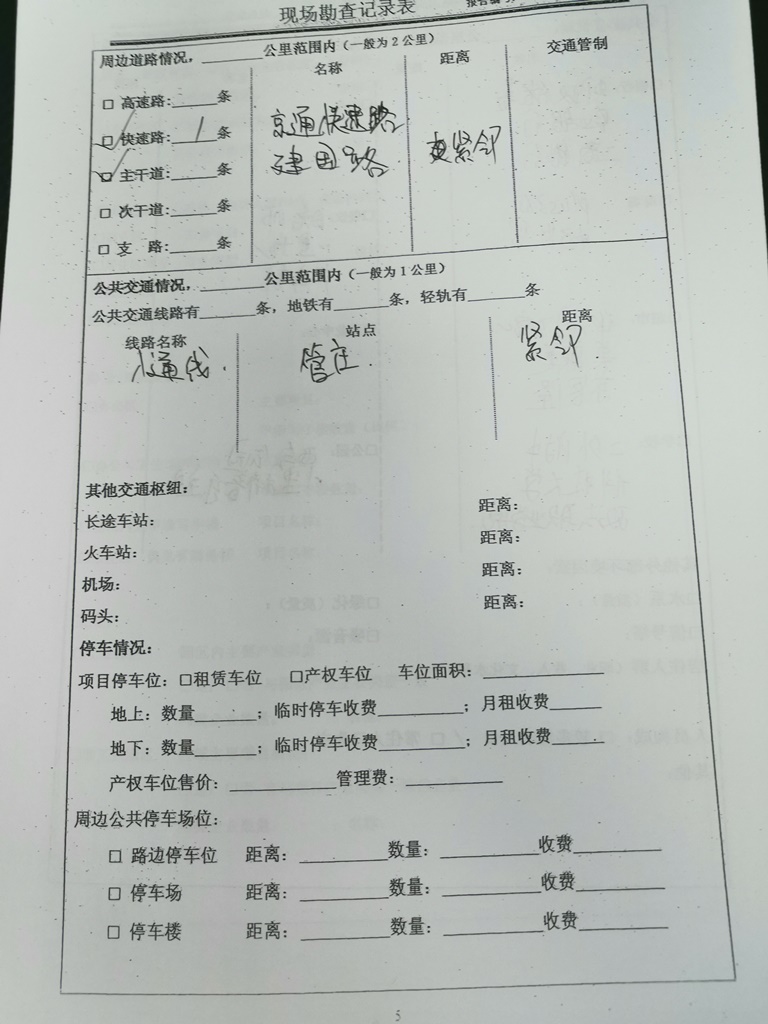 现场勘查记录表
周边道路情况，______公里范围内（一般为2公里）
名称 距离 交通管制
□ 高速路：_____条
☑ 快速路：__1__条 京通快速路
☑ 主干道：_____条 建国路 紧邻
□ 次干道：_____条
□ 支 路：_____条
公共交通情况，______公里范围内（一般为1公里）
公共交通线路有______条，地铁有______条，轻轨有______条
线路名称 站点 距离
八通线. 管庄. 紧邻.
其他交通枢纽：
长途车站： 距离：
火车站： 距离：
机场： 距离：
码头： 距离：
停车情况：
项目停车位：□租赁车位 □产权车位 车位面积：____________
地上：数量______；临时停车收费________；月租收费_____
地下：数量______；临时停车收费________；月租收费_____
产权车位售价：__________管理费：_________
周边公共停车场位：
□ 路边停车位 距离：________数量：_________收费________
□ 停车场 距离：________数量：_________收费________
□ 停车楼 距离：________数量：_________收费________
5